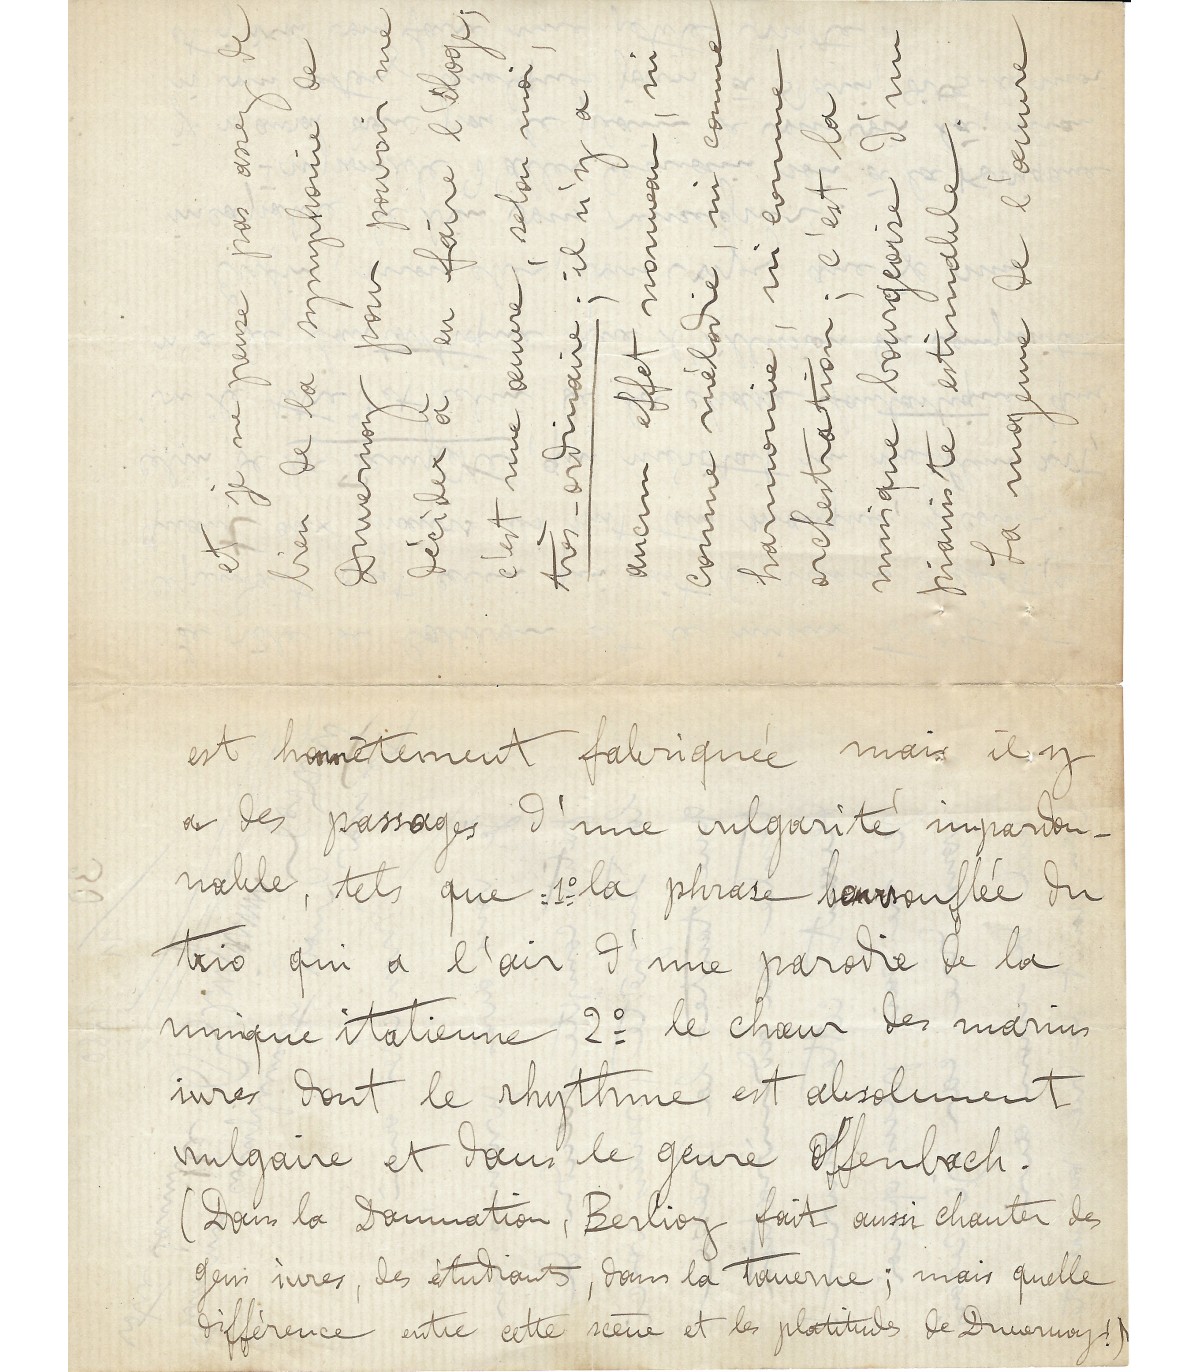 et je ne pense pas assez de
bien de la symphonie de
Duvernoy pour pouvoir me
décider à en faire l'éloge;
c'est une œuvre, selon moi,
très-ordinaire; il n'y a
aucun effet nouveau, ni
comme mélodie, ni comme
harmonie, ni comme
orchestration; c'est la
musique bourgeoise d'un
pianiste estimable.
La moyenne de l'œuvre
est honnêtement fabriquée mais il y
a des passages d'une vulgarité impardon-
nable, tels que :1º la phrase boursouflée du
trio qui a l'air d'une parodie de la
musique italienne 2º le chœur des marins
ivres dont le rhythme est absolument
vulgaire et dans le genre Offenbach.
(Dans la Damnation, Berlioz fait aussi chanter des
gens ivres, des étudiants, dans la taverne; mais quelle
différence entre cette scène et les platitudes de Duvernoy!)